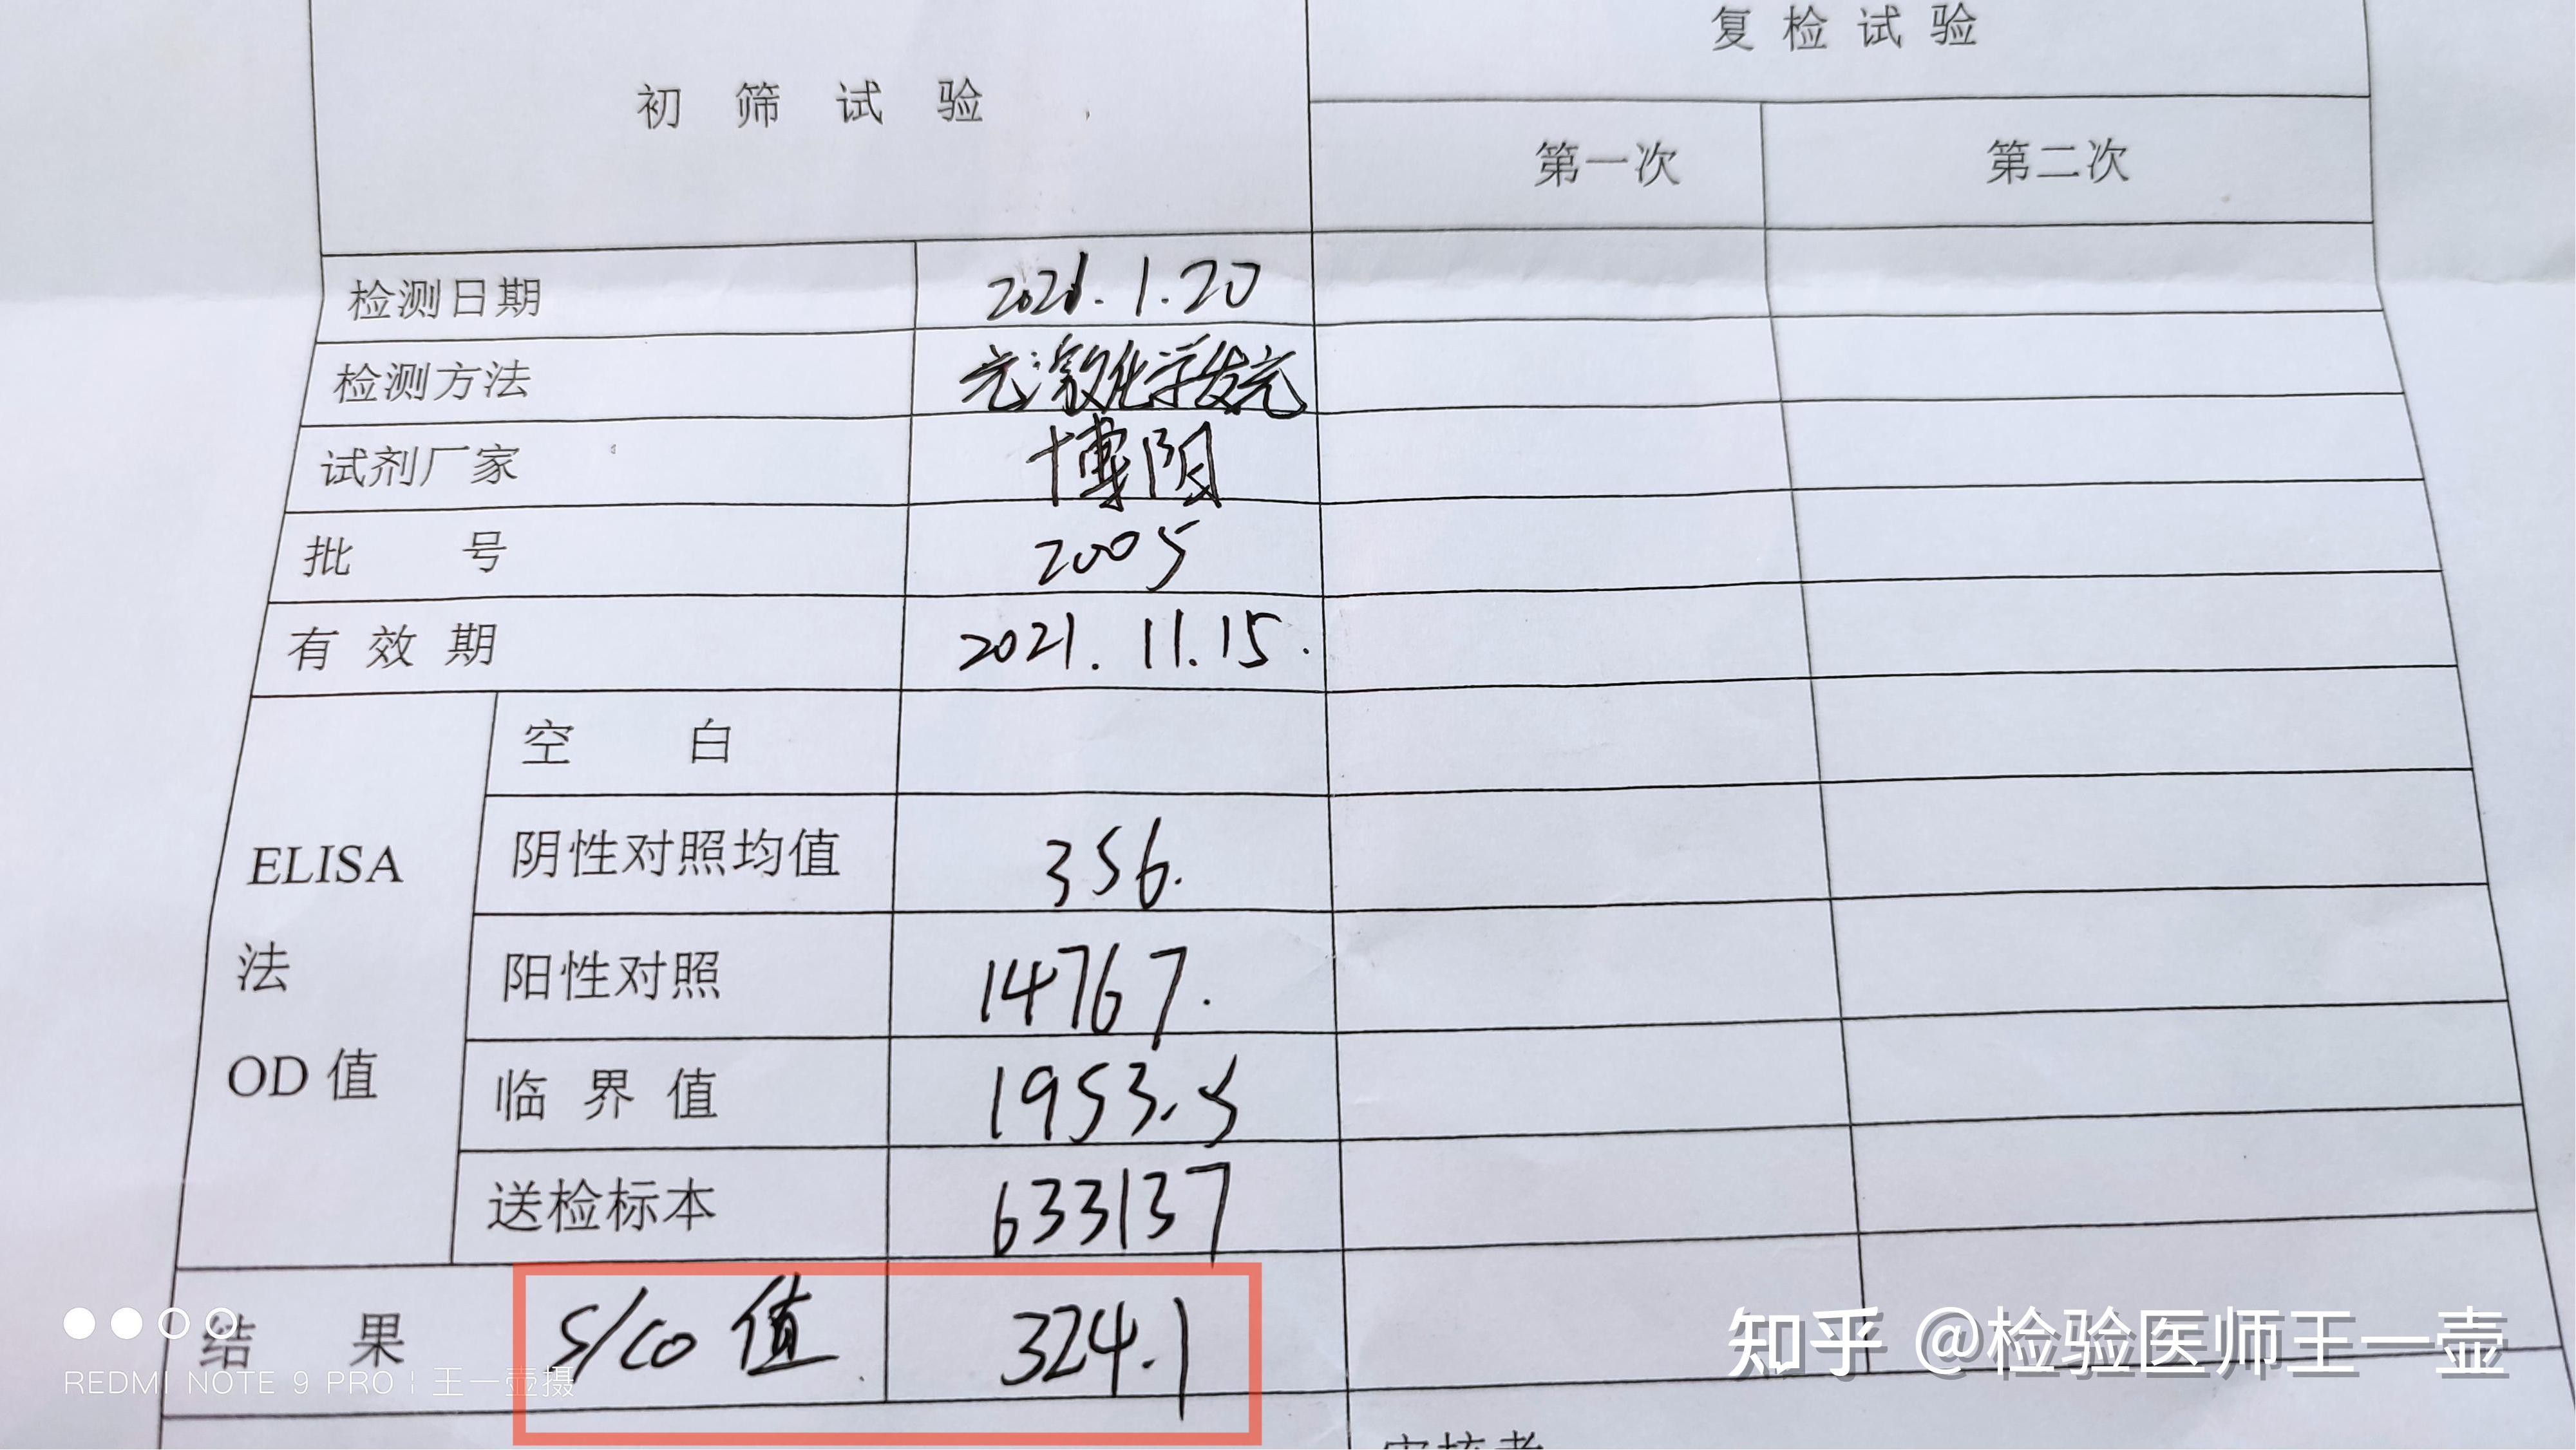 初 筛 试 验
复 检 试 验
第一次
第二次
检测日期 2021.1.20
检测方法 光激化学发光
试剂厂家 博阳
批 号 2005
有 效 期 2021.11.15.
ELISA
法
OD 值
空 白
阴性对照均值 356.
阳性对照 14767.
临 界 值 1953.5
送检标本 633137
结 果 S/CO 值 324.1
REDMI NOTE 9 PRO | 王一壶摄
知乎 @检验医师王一壶